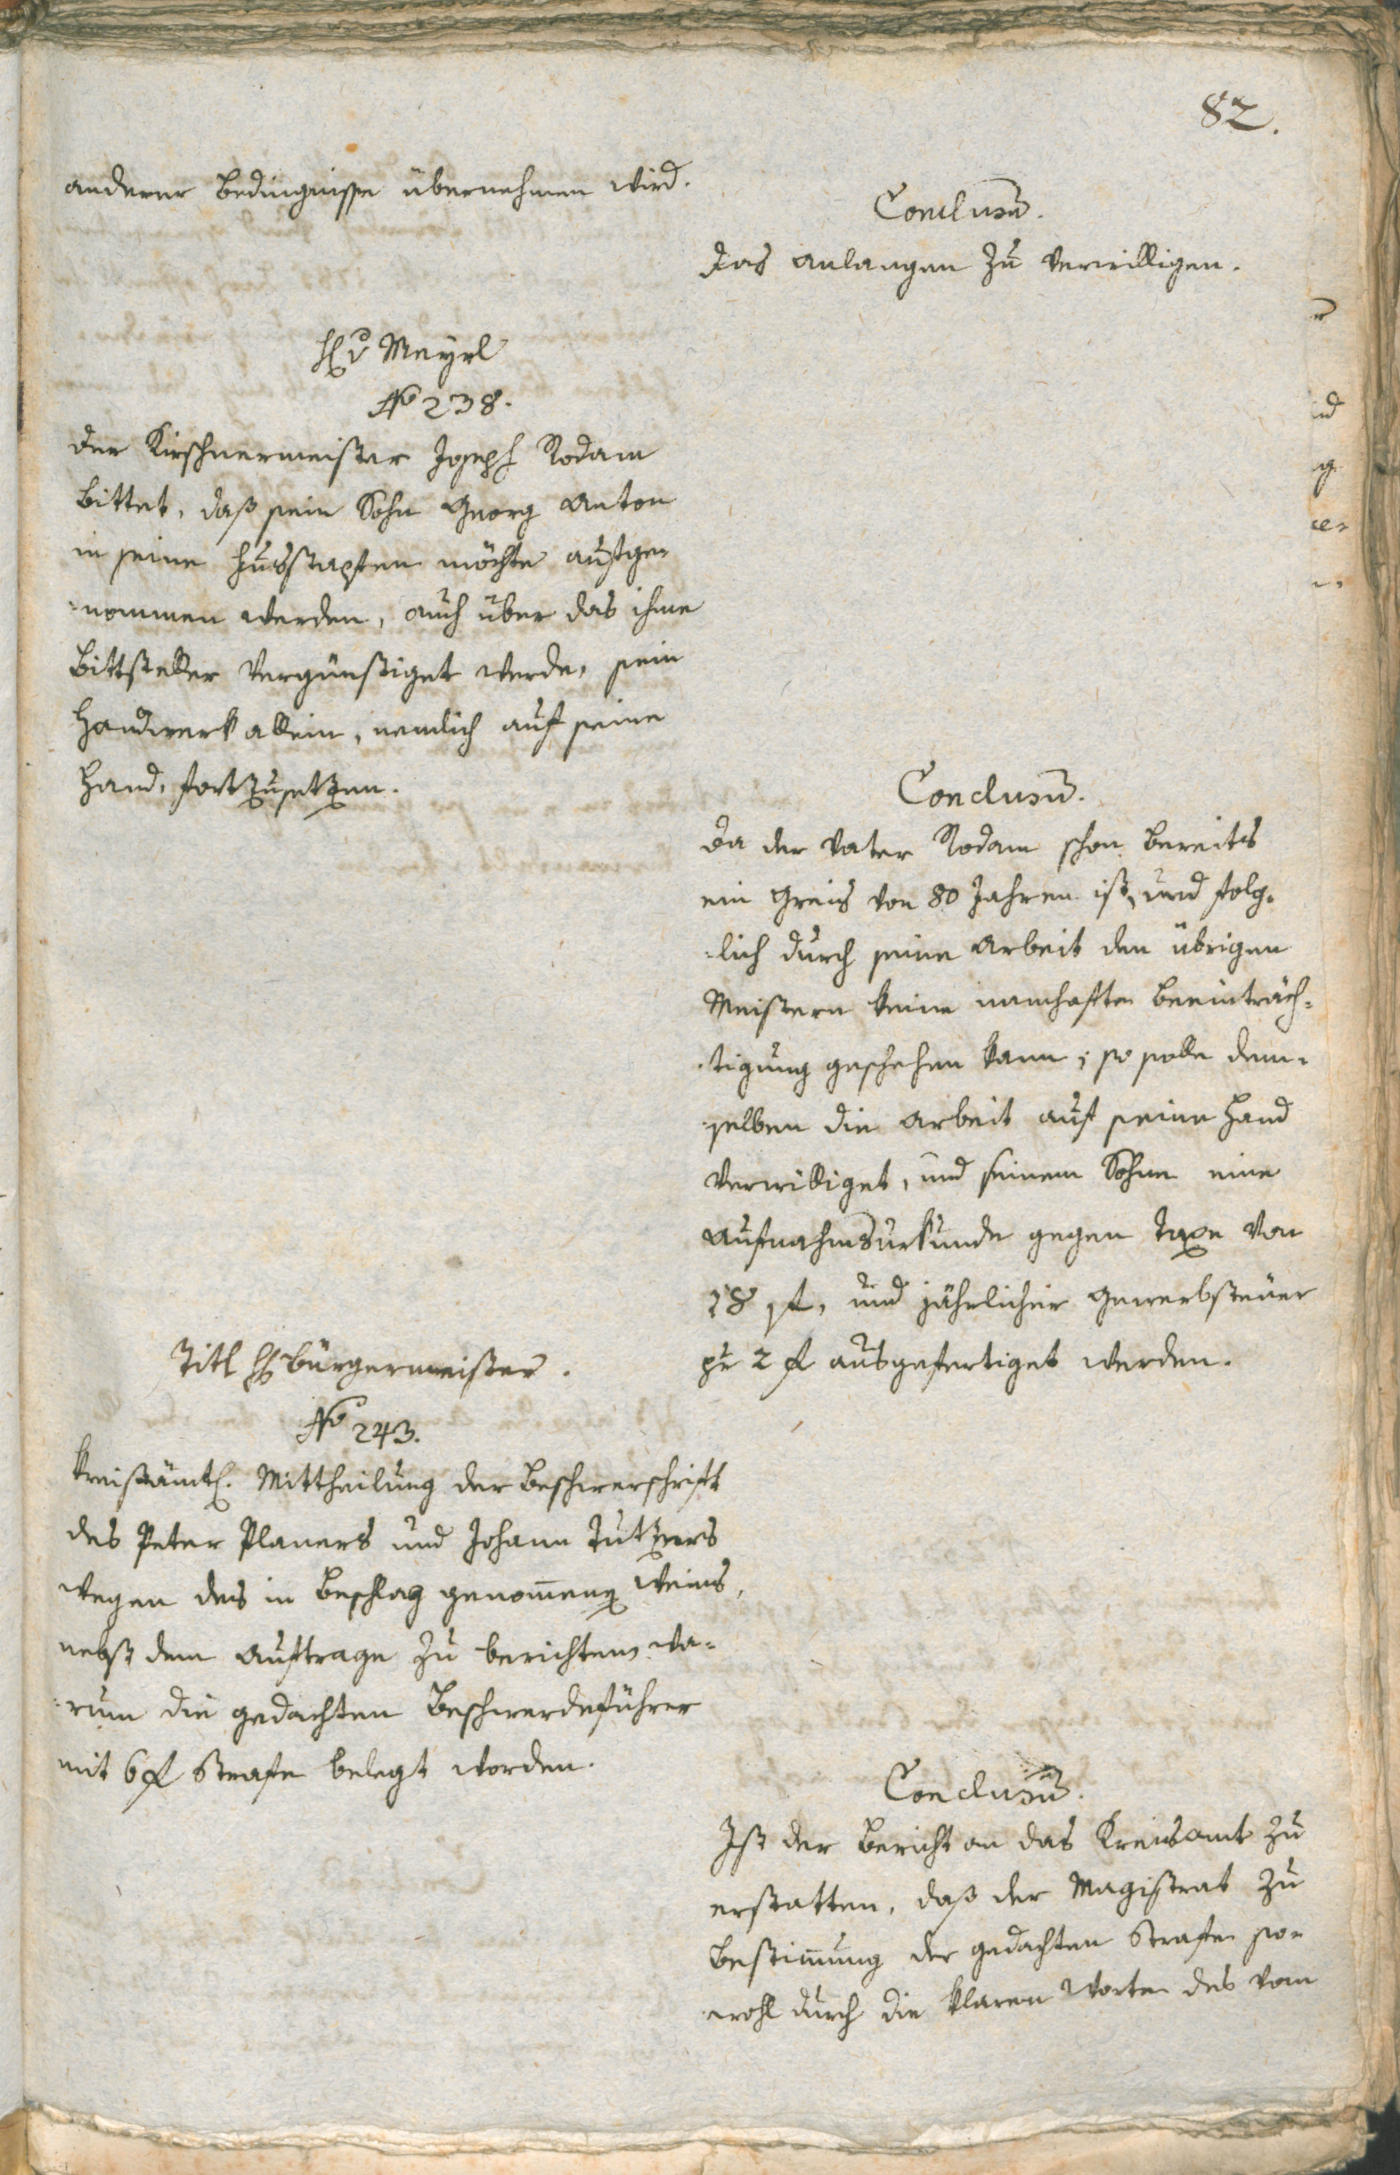 82.
anderer Bedingnisse übernehmen wird.
Conclusum̅.
Das anlangen zu verwilligen.
H v Mayrl
No 238.
Der Kirschnermeister Joseph Rodam
bittet, daß sein Sohn Georg Anton
in seine Fusstapfen möchte aufge-
-nommen werden, auch über das ihme
Bittsteller vergünstiget werde, sein
Handwerk allein, nemlich auf seine
Hand, fortzusetzen.
Conclusum̅.
Da der Vater Rodam schon bereits
ein Greis von 80 Jahren ist, und folg-
-lich durch seine Arbeit den übrigen
Meistern keine namhafte Beeinträch-
-tigung geschehen kann; so solle dem-
-selben die Arbeit auf seine Hand
verwilliget, und seinem Sohne eine
Aufnahmsurkunde gegen Taxe von
18 f, und jährlicher Gewerbsteuer
pr 2 f ausgefertiget werden.
Titl H Bürgermeister.
No 243.
Kreisämtl. Mittheilung der Beschwerschrift
des Peter Planers und Johann Tutzers
wegen des in Beschlag genom̅enen Weins,
nebst dem Auftrage zu berichten, wa-
-rum die gedachten Beschwerdeführer
mit 6 f Strafe belegt worden.
Conclusum̅.
Ist der Bericht an das Kreisamt zu
erstatten, daß der Magistrat zu
Bestim̅ung der gedachten Strafe so-
-wohl durch die klaren Worte des vom